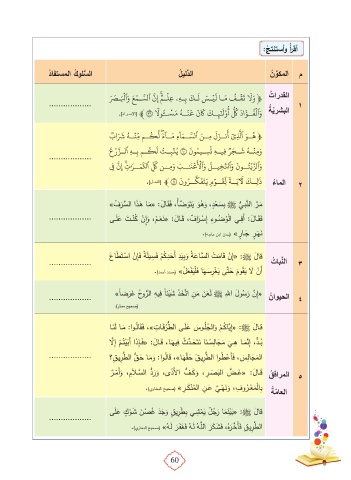 أقرأُ وأستنتجُ:
م المكوّنُ الدّليلُ السّلوكُ المستفادُ
١ القدراتُ البشريّةُ
﴿ وَلَا تَقْفُ مَا لَيْسَ لَكَ بِهِ عِلْمٌ إِنَّ السَّمْعَ وَالْبَصَرَ
وَالْفُؤَادَ كُلُّ أُولَٰئِكَ كَانَ عَنْهُ مَسْئُولًا ﴾ (الإسراء).
....................
٢ الماءُ
﴿ هُوَ الَّذِي أَنزَلَ مِنَ السَّمَاءِ مَاءً لَّكُم مِّنْهُ شَرَابٌ
وَمِنْهُ شَجَرٌ فِيهِ تُسِيمُونَ ۝ يُنبِتُ لَكُم بِهِ الزَّرْعَ
وَالزَّيْتُونَ وَالنَّخِيلَ وَالْأَعْنَابَ وَمِن كُلِّ الثَّمَرَاتِ إِنَّ فِي
ذَٰلِكَ لَآيَةً لِّقَوْمٍ يَتَفَكَّرُونَ ﴾ (النحل).
....................
مَرَّ النَّبِيُّ ﷺ بِسَعْدٍ، وَهُوَ يَتَوَضَّأُ، فَقَالَ: «مَا هَذَا السَّرَفُ»
فَقَالَ: أَفِي الْوُضُوءِ إِسْرَافٌ، قَالَ: «نَعَمْ، وَإِنْ كُنْتَ عَلَى
نَهَرٍ جَارٍ» (سنن ابن ماجه).
....................
٣ النّباتُ
قَالَ ﷺ: «إِنْ قَامَتِ السَّاعَةُ وَبِيَدِ أَحَدِكُمْ فَسِيلَةٌ فَإِنْ اسْتَطَاعَ
أَنْ لَا يَقُومَ حَتَّى يَغْرِسَهَا فَلْيَفْعَلْ» (مسند أحمد).
....................
٤ الحيوانُ
«إِنَّ رَسُولَ اللهِ ﷺ لَعَنَ مَنِ اتَّخَذَ شَيْئًا فِيهِ الرُّوحُ غَرَضًا»
(صحيح مسلم).
....................
٥ المرافقُ العامّةُ
قَالَ ﷺ: «إِيَّاكُمْ وَالْجُلُوسَ عَلَى الطُّرُقَاتِ»، فَقَالُوا: مَا لَنَا
بُدٌّ، إِنَّمَا هِيَ مَجَالِسُنَا نَتَحَدَّثُ فِيهَا، قَالَ: «فَإِذَا أَبَيْتُمْ إِلَّا
الْمَجَالِسَ، فَأَعْطُوا الطَّرِيقَ حَقَّهَا»، قَالُوا: وَمَا حَقُّ الطَّرِيقِ؟
قَالَ: «غَضُّ الْبَصَرِ، وَكَفُّ الْأَذَى، وَرَدُّ السَّلَامِ، وَأَمْرٌ
بِالْمَعْرُوفِ، وَنَهْيٌ عَنِ الْمُنْكَرِ» (صحيح البخاري).
....................
قَالَ ﷺ: «بَيْنَمَا رَجُلٌ يَمْشِي بِطَرِيقٍ وَجَدَ غُصْنَ شَوْكٍ عَلَى
الطَّرِيقِ فَأَخَّرَهُ، فَشَكَرَ اللَّهُ لَهُ فَغَفَرَ لَهُ» (صحيح البخاري).
....................
60